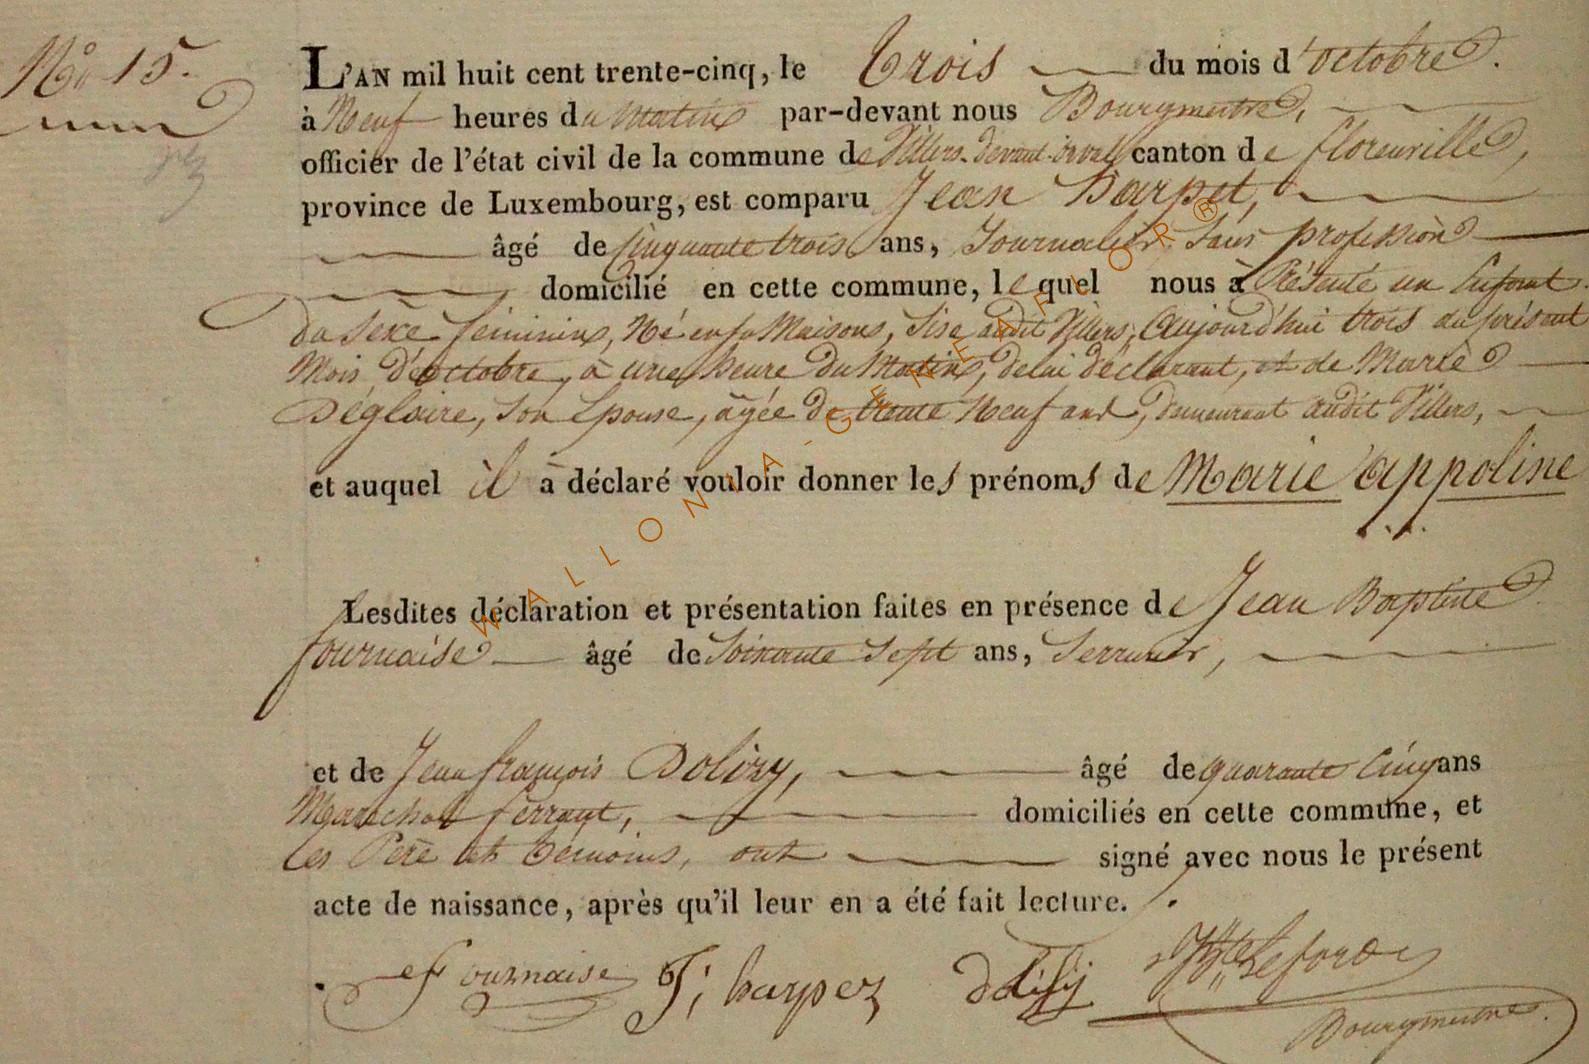 No 15.
L'AN mil huit cent trente-cinq, le trois du mois d'octobre.
à Neuf heures du Matin par-devant nous Bourgmestre,
officier de l'état civil de la commune de Villers-devant-orval canton de florenville,
province de Luxembourg, est comparu Jean harpet,
âgé de Cinquante trois ans, Journalier sans profession
domicilié en cette commune, lequel nous à Présenté un Enfant
du Sexe féminin, Né en sa Maison, Sise audit Villers, Aujourd'hui trois du présent
Mois d'octobre, à une heure du Matin, de lui déclarant, et de Marie
Déglaire, son Epouse, agée de trente Neuf ans, demeurant audit Villers,
et auquel il à déclaré vouloir donner les prénoms de Marie appoline
Lesdites déclaration et présentation faites en présence de Jean Baptiste
fournaise âgé de Soixante Sept ans, Serrurier,
et de Jean françois Dolizy, âgé de quarante Cinq ans
Marechal ferrant, domiciliés en cette commune, et
les Père et témoins, ont signé avec nous le présent
acte de naissance, après qu'il leur en a été fait lecture.
fournaise J; harpez dolisij Leforc
Bourgmestre.
WALLONIA-GENEAFLOR®